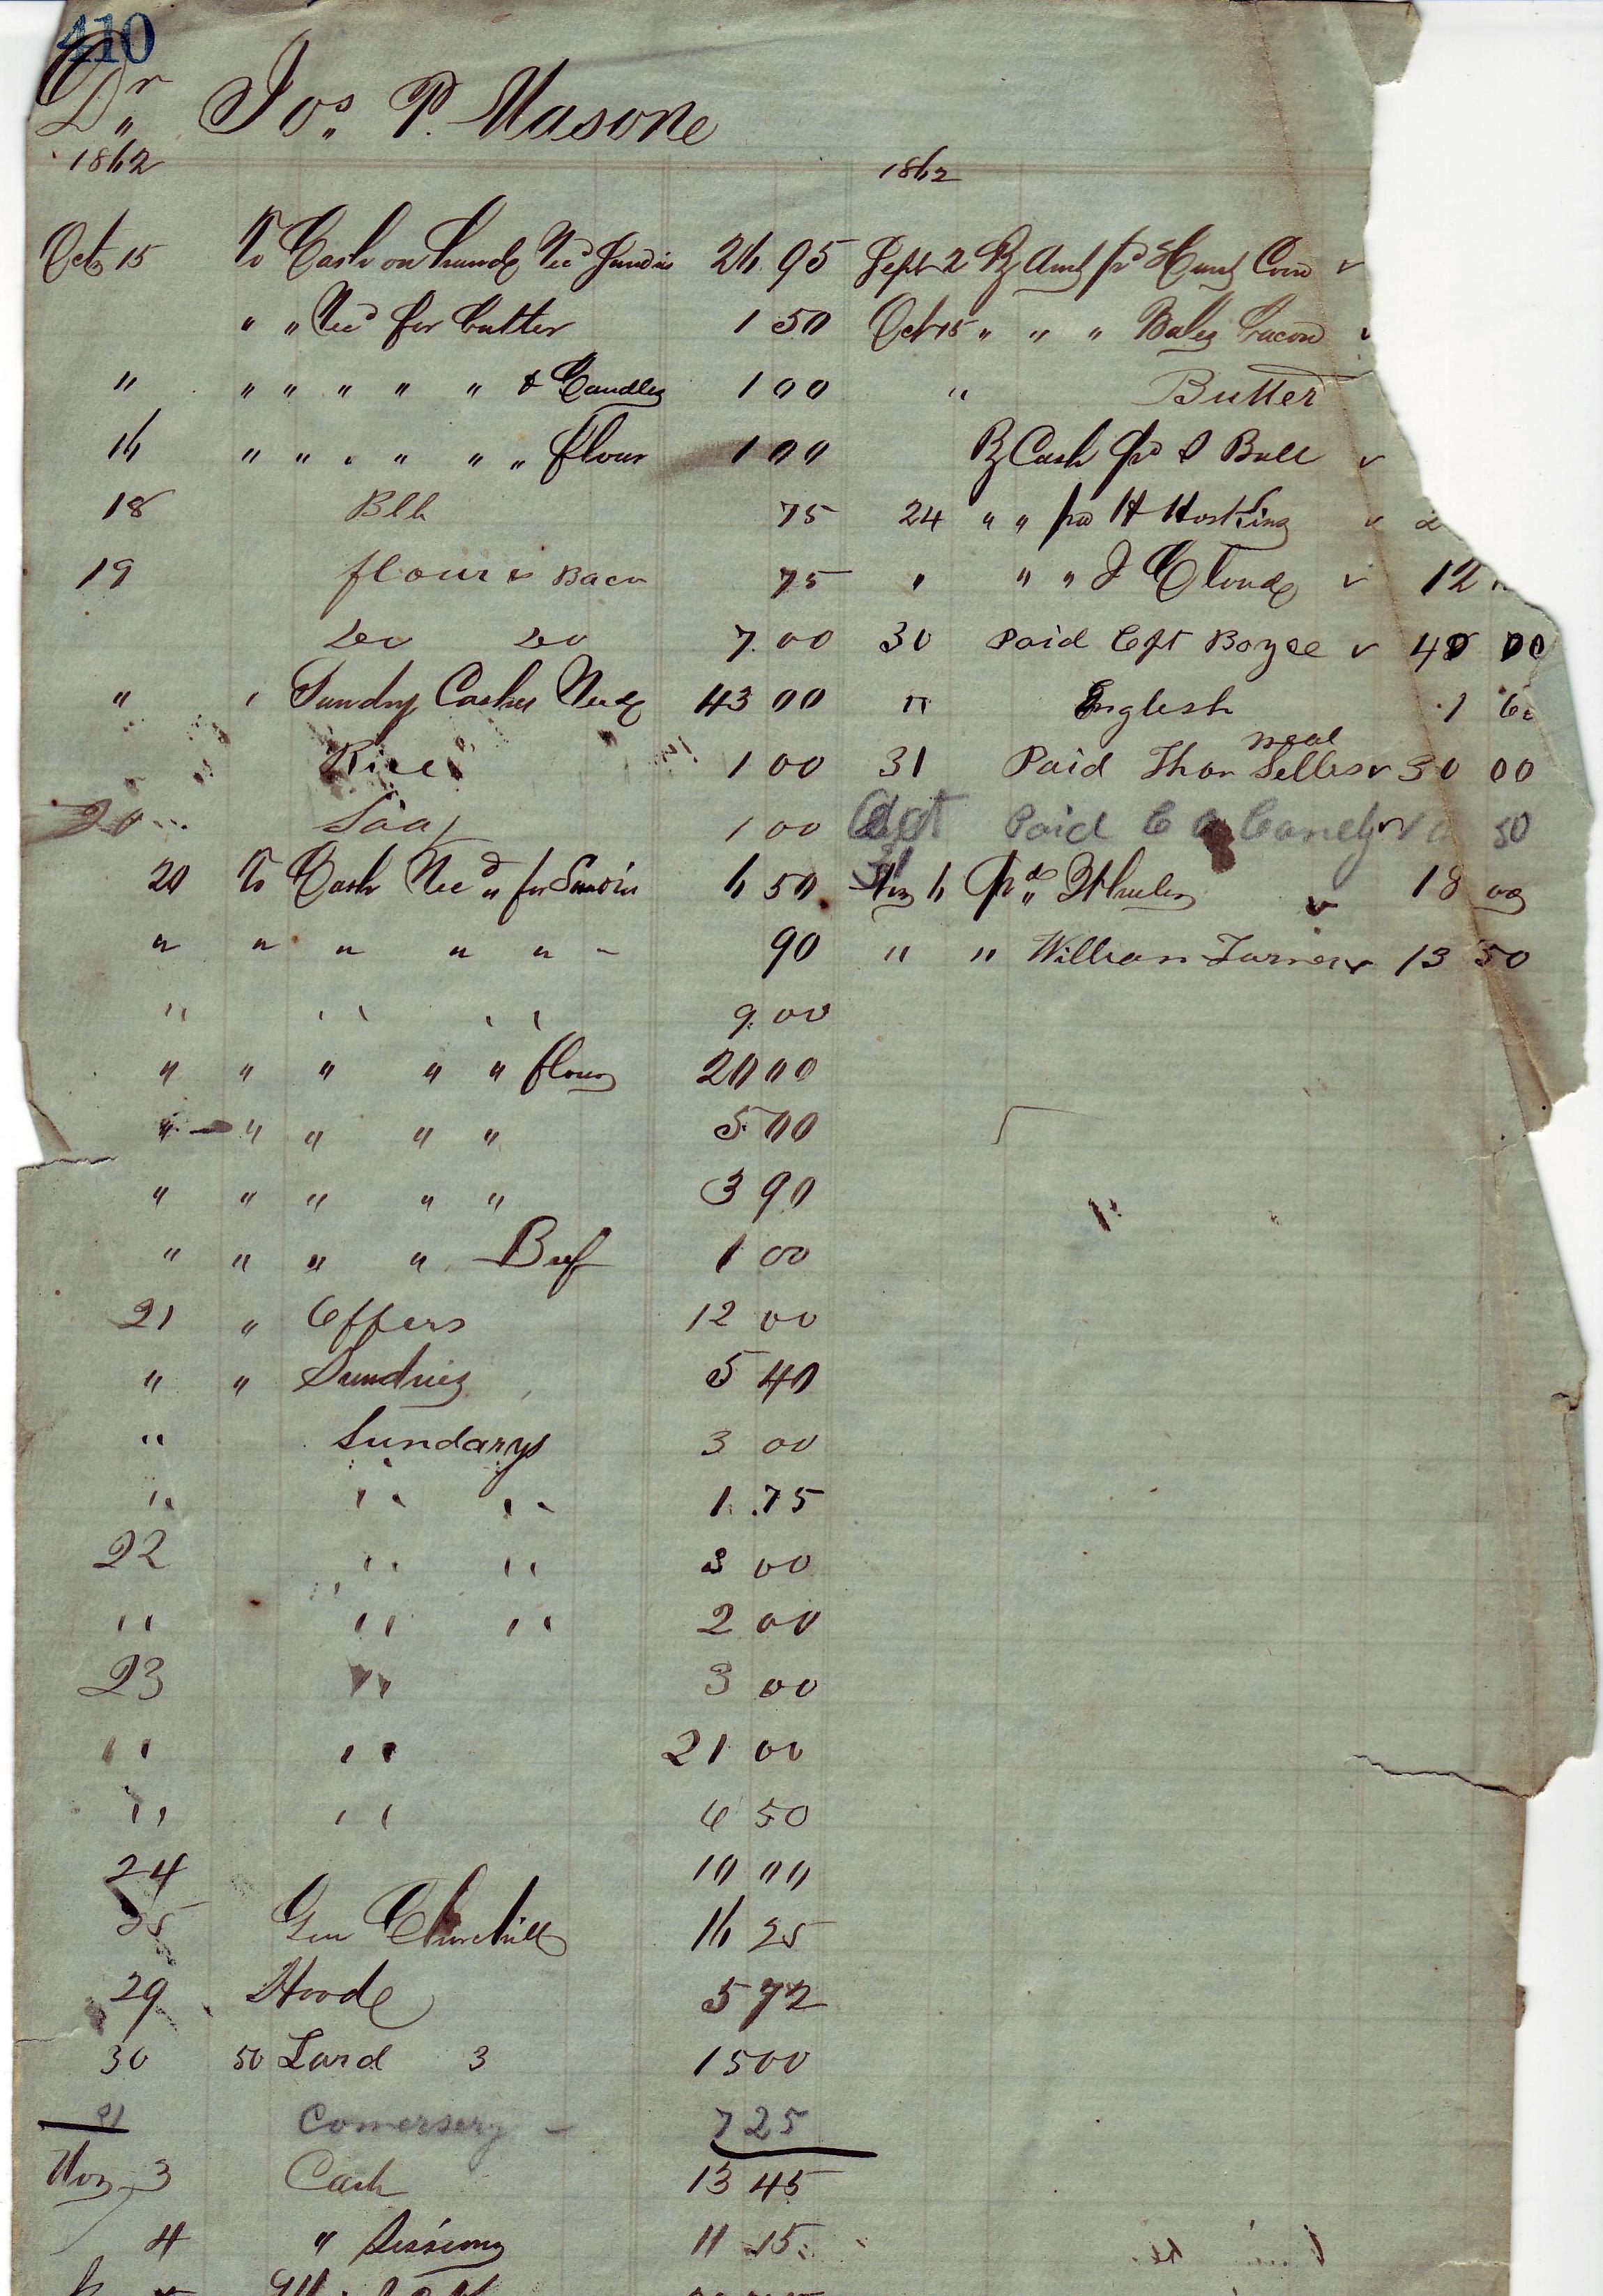 410
Dr Jos. P. Masone
1862 1862
Oct 15 To Cash on hand Rec'd Sundries 26 95 Sept 2 By Amt pd Hunt Corn v
" " Rec'd for butter 1 50 Oct 15 " " " Bales bacon v
" " " " " " & Candles 1 00 " Butter
16 " " " " " " flour 1 00 By Cash pd Bull v
18 Blk 75 24 " " pd H Hosking v 2
19 flour & Bacn 75 " " " J Cloud v 12
Do Do 7 00 30 Paid Cpt Boyce v 40 00
" " Sundry Cashes Recd 43 00 " English 1 6
Rice 1 00 31 Paid Thos neal Selles v 30 00
20 Soap 1 00 Oct 31 Paid C A Candy v 50
20 To Cash Rec'd for Sundries 6 50 Nov 6 pd Wheler v 18 00
" " " " " 90 " " William Turner v 13 50
" " " 9 00
" " " " " flour 20 00
" " " " " 5 00
" " " " " 3 90
" " " " Beef 1 00
21 " Offers 12 00
" " Sundries 5 40
" Sundarys 3 00
" " " 1 75
22 " " 3 00
" " " 2 00
23 " 3 00
" " 21 00
" " 6 50
24 10 00
25 Gen Churchill 16 25
29 Hood 5 72
30 50 Lard 3 15 00
31 Comersery 7 25
Nov 3 Cash 13 45
4 " Sissions 11 15